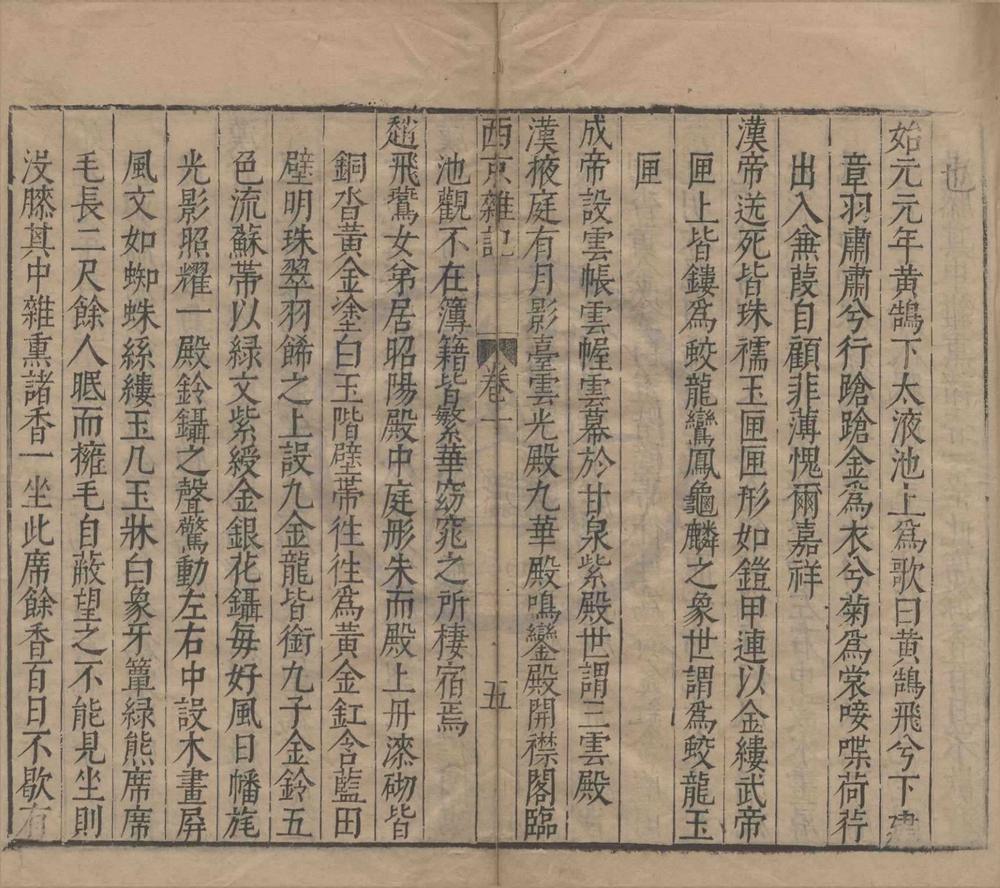 始元元年黃鵠下太液池上爲歌曰黃鵠飛兮下建
章羽肅肅兮行蹌蹌金爲衣兮菊爲裳唼喋荷荇
出入蒹葭自顧非薄愧爾嘉祥
漢帝送死皆珠襦玉匣匣形如鎧甲連以金縷武帝
匣上皆鏤爲蛟龍鸞鳳龜麟之象世謂爲蛟龍玉
匣
成帝設雲帳雲幄雲幕於甘泉紫殿世謂三雲殿
漢掖庭有月影臺雲光殿九華殿鳴鑾殿開襟閣臨
西京雜記 卷一 五
池觀不在簿籍皆繁華窈窕之所棲宿焉
趙飛鷰女弟居昭陽殿中庭彤朱而殿上丹漆砌皆
銅沓黃金塗白玉階壁帶往往爲黃金釭含藍田
璧明珠翠羽餙之上設九金龍皆銜九子金鈴五
色流蘇帶以綠文紫綬金銀花鑷每好風日幡旄
光影照耀一殿鈴鑷之聲驚動左右中設木畫屏
風文如蜘蛛絲縷玉几玉牀白象牙簟綠熊席席
毛長二尺餘人眠而擁毛自蔽望之不能見坐則
沒膝其中雜熏諸香一坐此席餘香百日不歇有